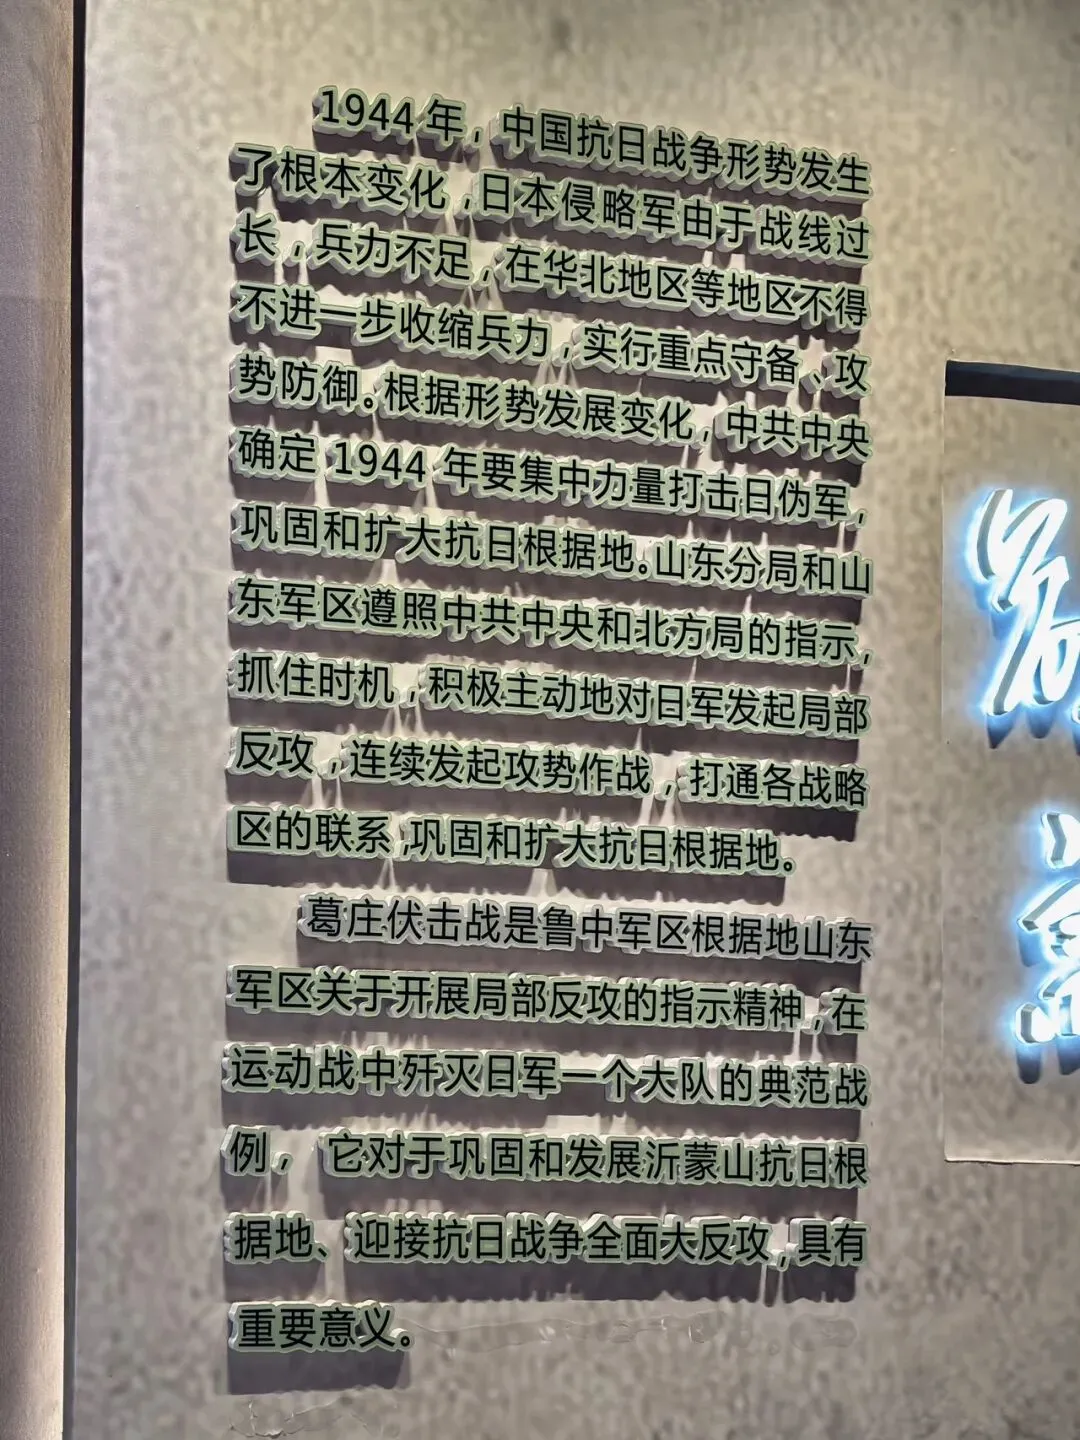 1944年，中国抗日战争形势发生
了根本变化，日本侵略军由于战线过
长，兵力不足，在华北地区等地区不得
不进一步收缩兵力，实行重点守备、攻
势防御。根据形势发展变化，中共中央
确定 1944 年要集中力量打击日伪军，
巩固和扩大抗日根据地。山东分局和山
东军区遵照中共中央和北方局的指示，
抓住时机，积极主动地对日军发起局部
反攻，连续发起攻势作战，打通各战略
区的联系，巩固和扩大抗日根据地。
葛庄伏击战是鲁中军区根据地山东
军区关于开展局部反攻的指示精神，在
运动战中歼灭日军一个大队的典范战
例， 它对于巩固和发展沂蒙山抗日根
据地、迎接抗日战争全面大反攻，具有
重要意义。